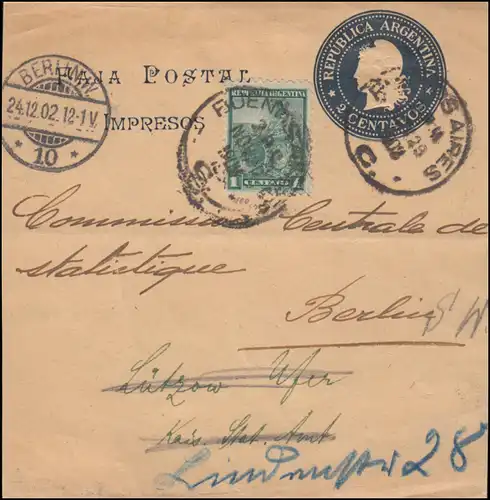 REPUBLICA ARGENTINA
2 CENTAVOS
FAJA POSTAL
IMPRESOS
BERLIN.W.
24.12.02.12-1V.
* 10 *
1 CENTAVO
BUENOS AIRES
Commission Centrale de
statistique
Berlin S W.
Lützow Ufer
Kais. Stat. Amt
Lindenstr 28